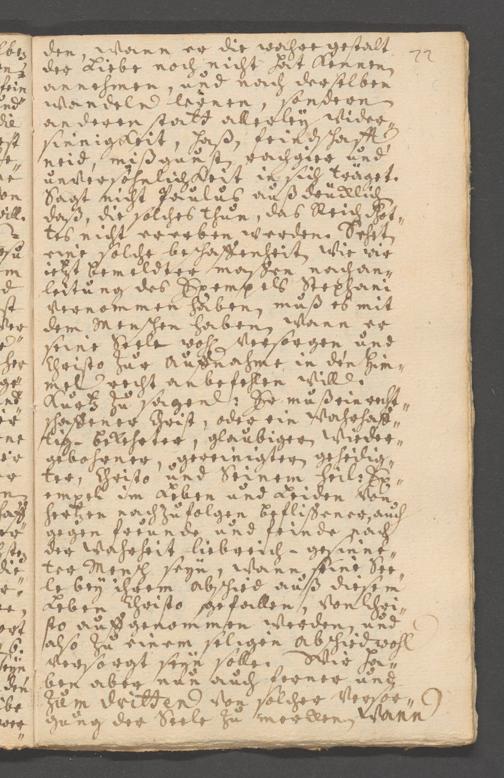 22
den, wann er die wahre gestalt
der Liebe noch nicht hat kennen,
annehmen, und nach derselben
wandeln lernen, sondern
an deren statt allerley wider-
sinnigkeit, haß, feindschafft
neid, mißgunst, rachgier und
unversöhnlichkeit in sich träget.
Sagt nicht Paulus außdrücklich
daß, die solches thun, das Reich Got-
tes nicht ererben werden. Sehet
eine solche beschaffenheit, wie wir
ietzt bemeldter massen nach an-
leitung des Exempels Stephani
vernommen haben, muß es mit
dem Menschen haben, wann er
seine Seele wohl versorgen und
Christo zur Auffnahme in den Him-
mel recht anbefehlen will.
Kurtz zu sagen: Er muß ein recht-
schaffener Christ, oder ein wahrhaff-
tig-bekehrter, glaubiger, wieder-
gebohrner, gereinigter, geheilig-
ter, Christo und Seinem heil: Ex-
empel im Leben und Leiden von
hertzen nachzufolgen beflissener, auch
gegen freunde und feinde nach
der Wahrheit liebreich-gesinne-
ter Mensch seyn, wann seine See-
le bey ihrem abschied auß diesem
Leben Christo gefallen, von Chri-
sto auffgenommen werden, und
also zu einem seligen abschied wohl
versorgt seyn solle. Wir ha-
ben aber nun auch ferner und
zum dritten von solcher versor-
gung der Seele zu mercken, Wann